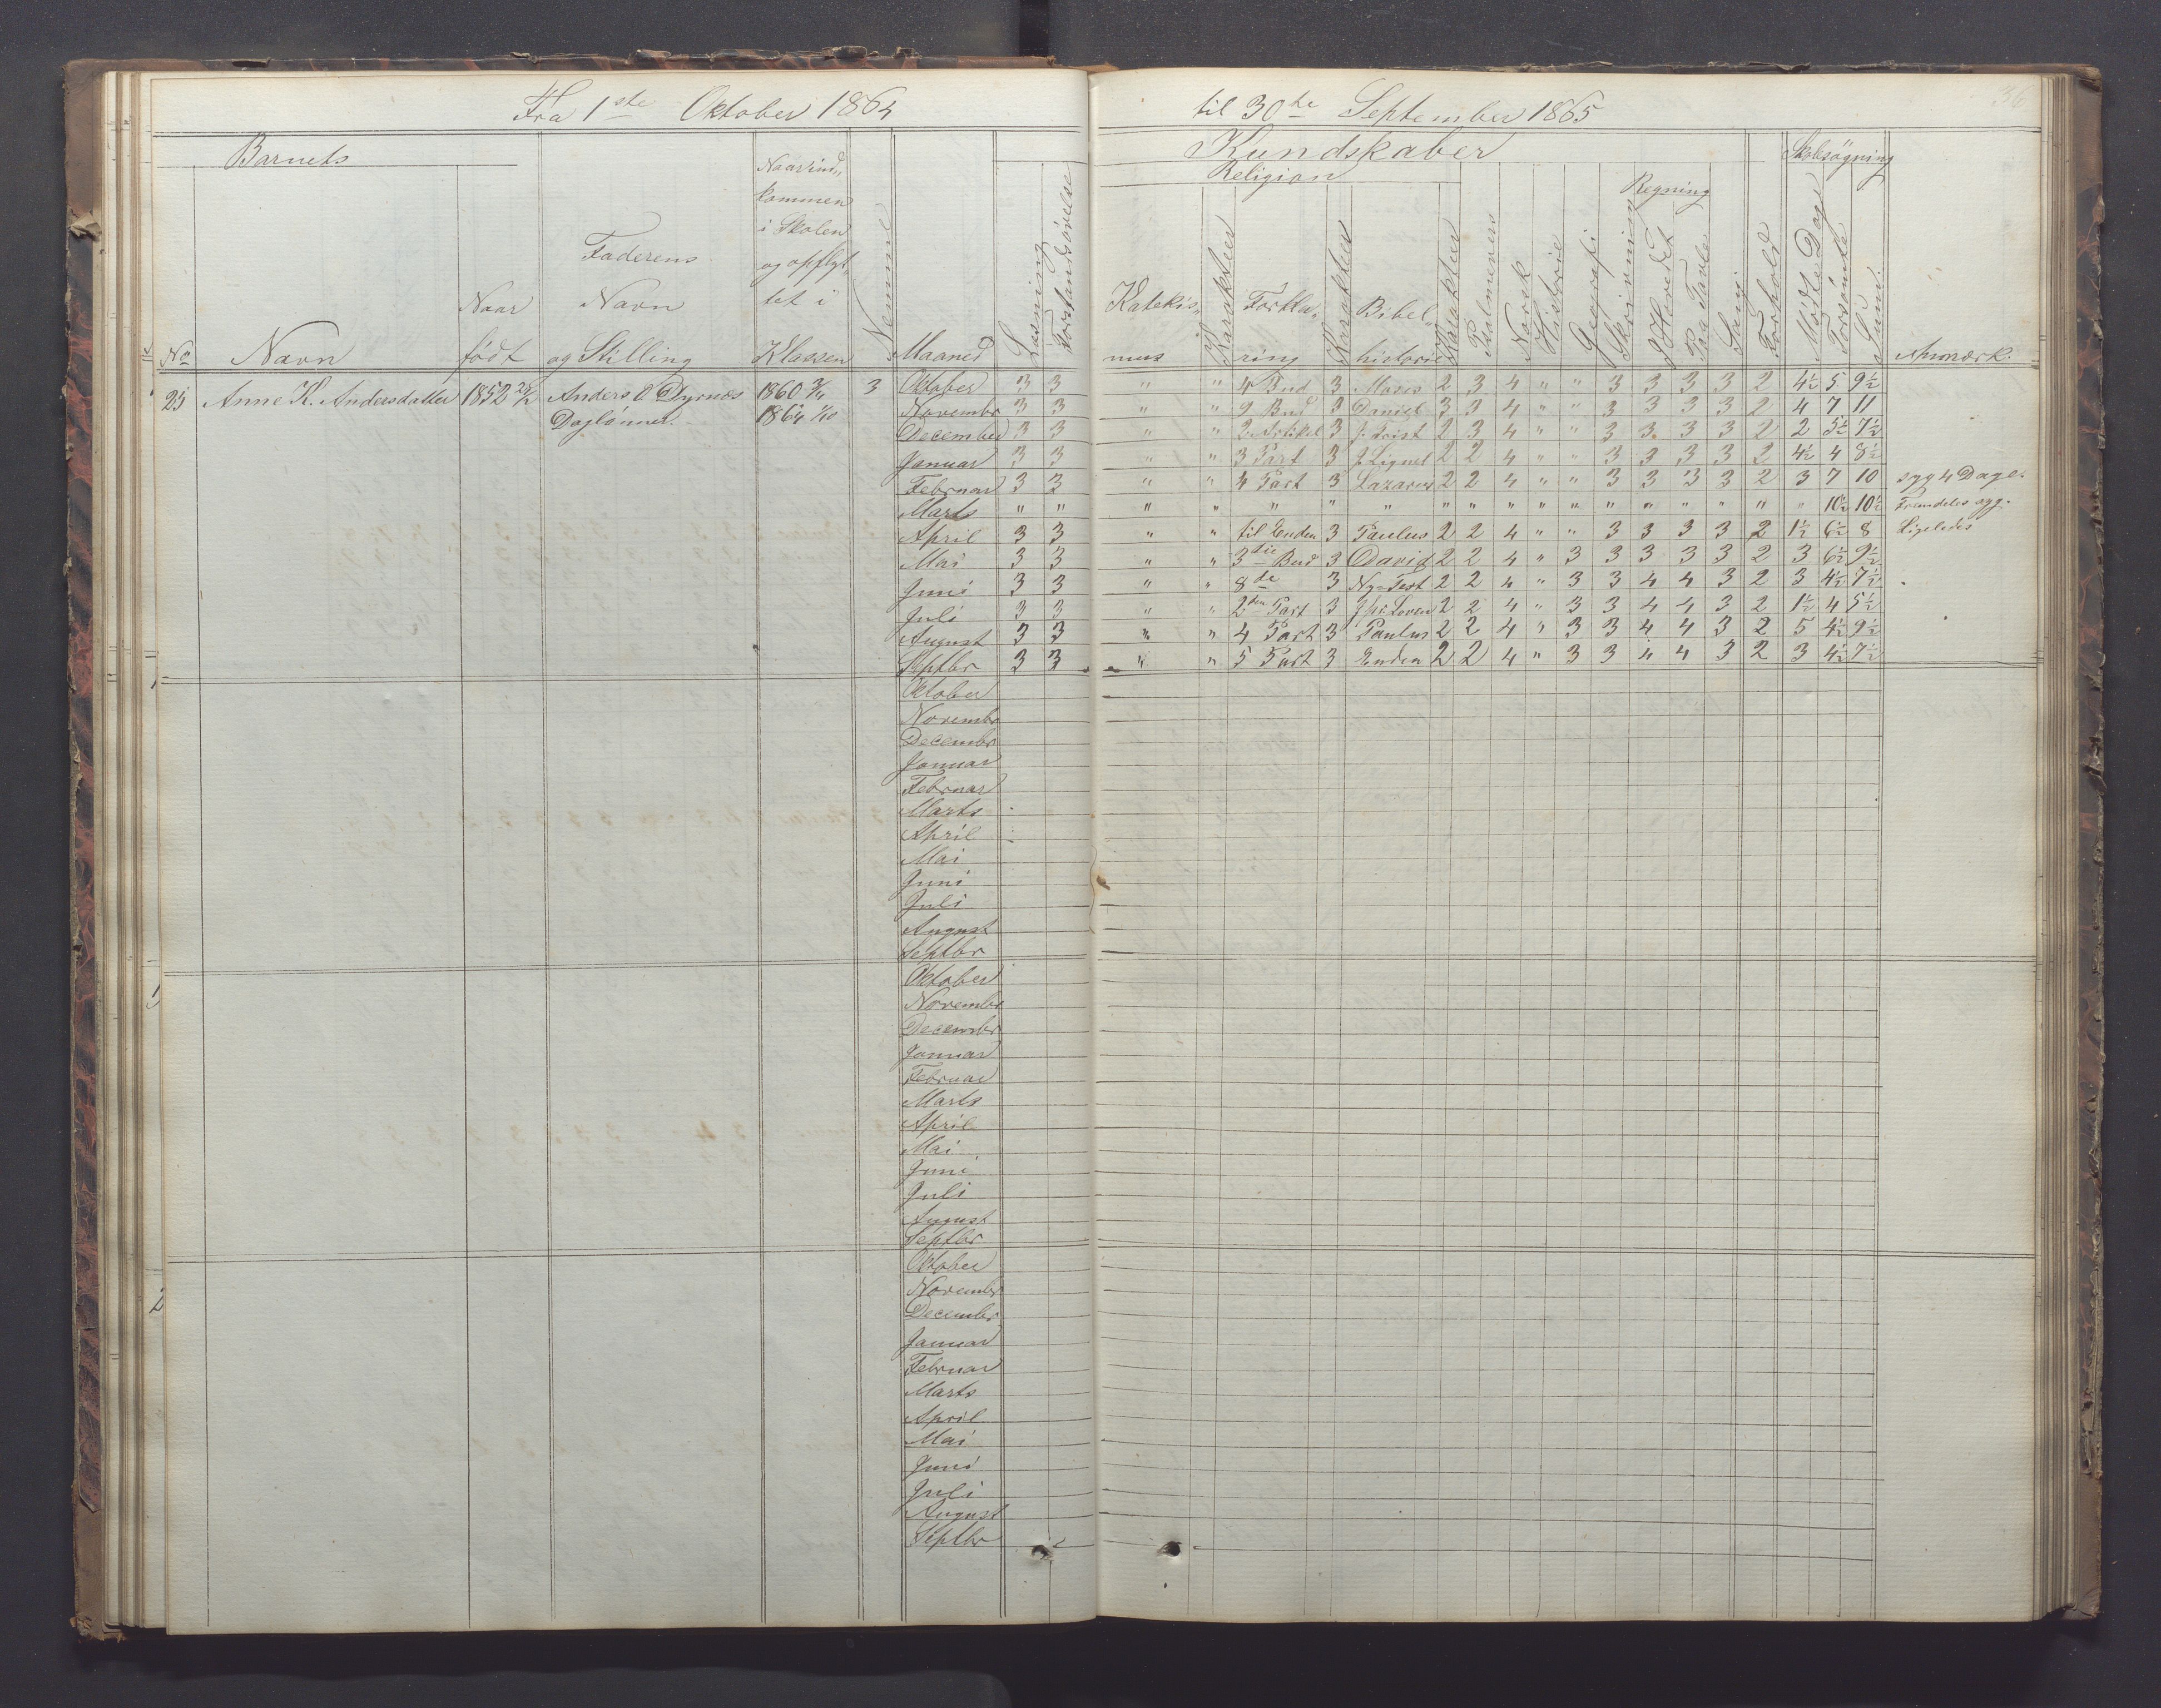 Fra 1ste Oktober 1864 til 30te September 1865
36
Barnets
Kundskaber
Skolesøgning
Religion
Regning
No
Navn
Naar født
Faderens Navn og Stilling
Naar ind„ kommen i Skolen og opflyt„ tet i Klassen
Nummer
Maaned
Læsning
Forstandsøvelse
Katekis„ mus
Karakter
Forkla„ ring
Karakter
Bibel„ historie
Karakter
Psalmevers
Norsk
Historie
Geografi
Skrivning
I Hovedet
Paa Tavle
Sang
Forhold
Mødte Dage
Forsømte
Sum.
Anmærk.
25 Anne K. Andersdatter 1852 Anders O Dyrnæs 1860 3 Oktober 3 3 " " 4 Bud 3 Moses 2 3 4 " " 3 3 3 3 2 4½ 5 9½
Daglønner. 1864 Novembr 3 3 " " 9 Bud 3 Daniel 3 3 4 " " 3 3 3 3 2 4 7 11
December 3 3 " " 2 Artikel 3 J. Krist 2 3 4 " " 3 3 3 3 2 2 5½ 7½
Januar 3 3 " " 3 Part 3 J. Lignel 2 2 4 " " 3 3 3 3 2 4½ 4 8½
Februar 3 3 " " 4 Part 3 Lazarus 2 2 4 " " 3 3 3 3 2 3 7 10 syg 4 Dage.
Marts " " " " " " " " " " " " " " " " " " " 10½ 10½ Fremdeles syg.
April 3 3 " " til Enden 3 Paulus 2 2 4 " " 3 3 3 3 2 1½ 6½ 8 Ligeledes
Mai 3 3 " " 3die Bud 3 David 2 2 4 " 3 3 3 3 3 2 3 6½ 9½
Juni 3 3 " " 8de 3 Ny-Test 2 2 4 " 3 3 4 4 3 2 3 4½ 7½
Juli 3 3 " " 2den Part 3 2 2 4 " 3 3 4 4 3 2 1½ 4 5½
August 3 3 " " 4 Part 3 Paulus 2 2 4 " 3 3 4 4 3 2 5 4½ 9½
Septbr 3 3 " " 5 Part 3 Enden 2 2 4 " 3 3 4 4 3 2 3 4½ 7½
Oktober
Novembr
Decembr
Januar
Februar
Marts
April
Mai
Juni
Juli
August
Septbr
Oktober
Novembr
Decembr
Januar
Februar
Marts
April
Mai
Juni
Juli
August
Septbr
Oktober
Novembr
Decembr
Januar
Februar
Marts
April
Mai
Juni
Juli
August
Septbr